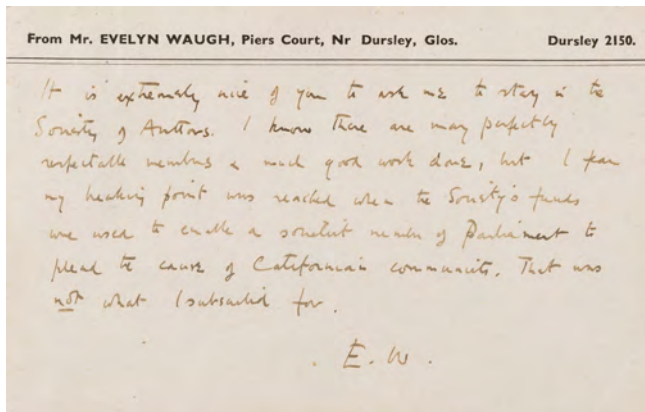 From Mr. EVELYN WAUGH, Piers Court, Nr Dursley, Glos. Dursley 2150.
It is extremely nice of you to ask me to stay in the
Society of Authors. I know there are many perfectly
respectable members & much good work done, but I fear
my breaking point was reached when the Society's funds
were used to enable a socialist member of Parliament to
plead the cause of Californian communists. That was
not what I subscribed for.
E. W.